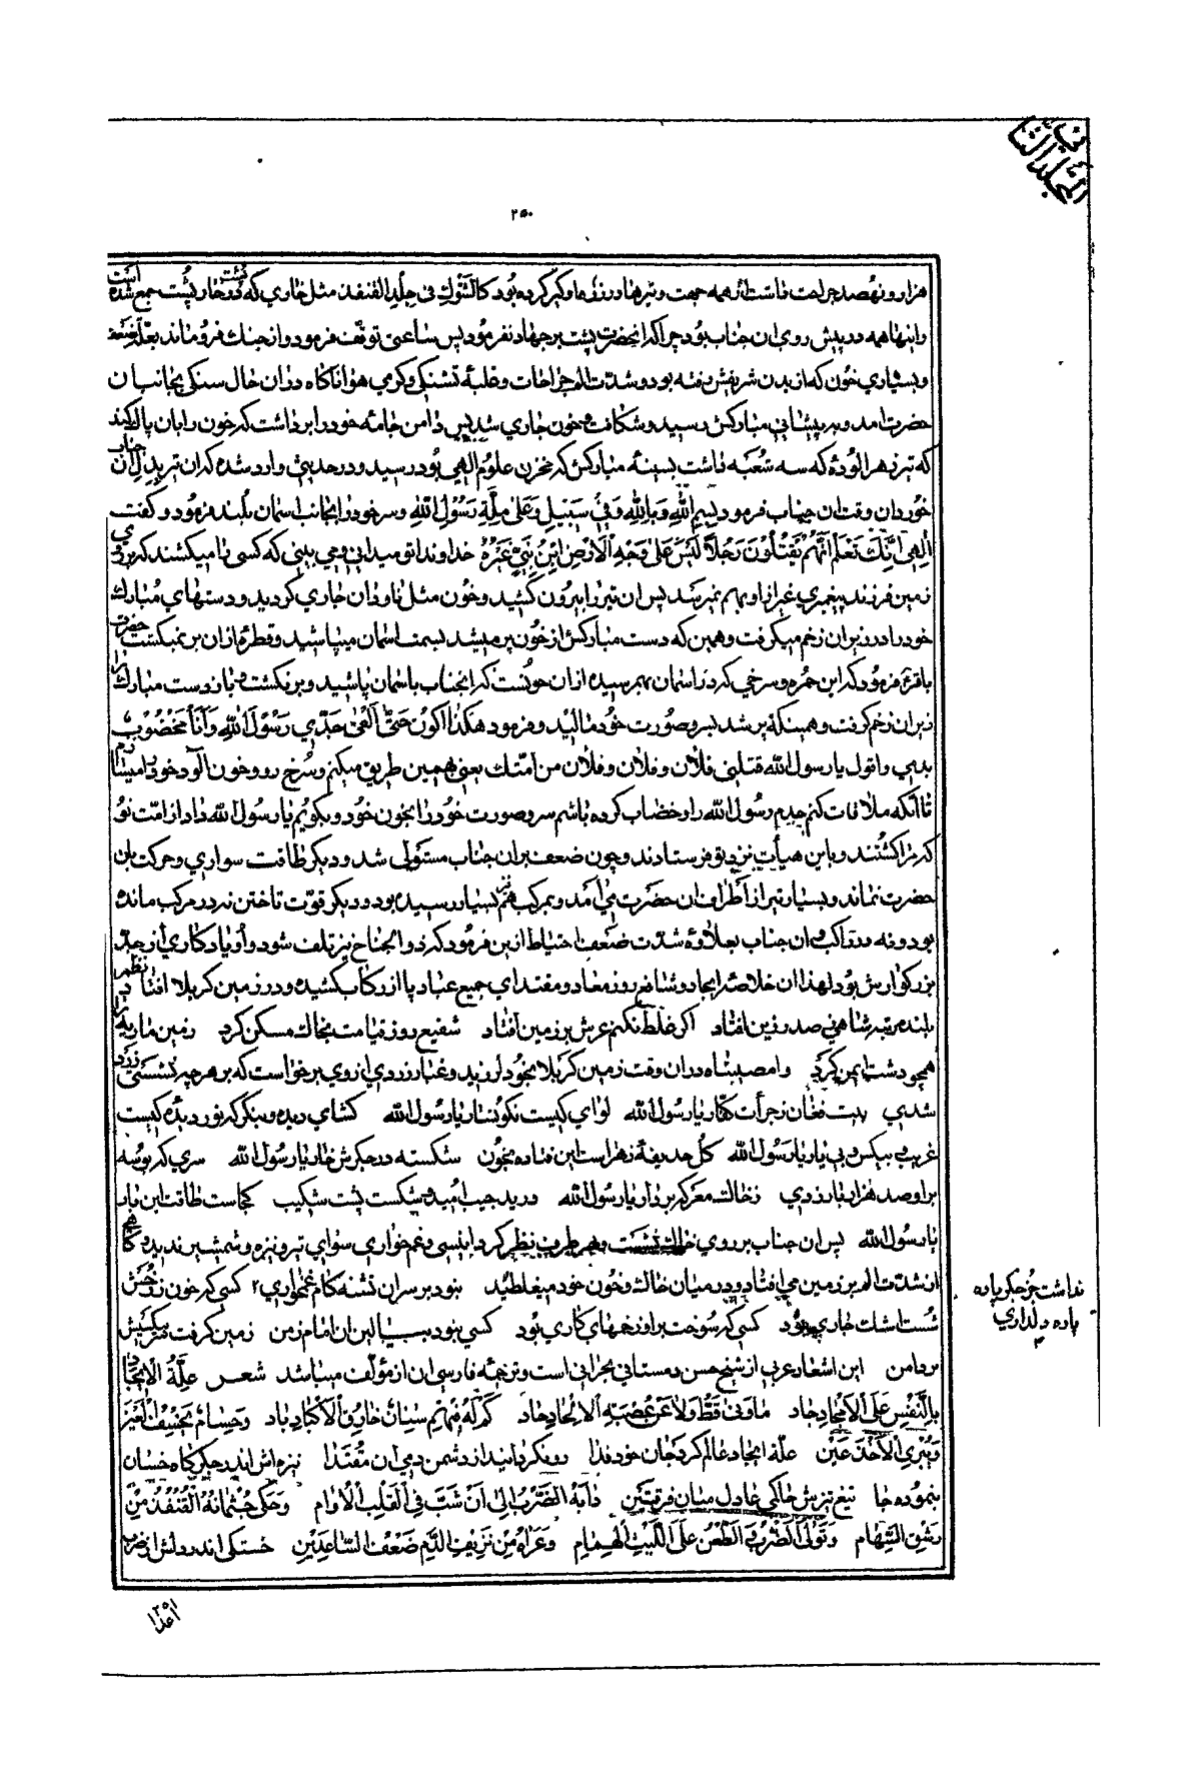 المجلد الثانی
۲۵۰
هزار و نهصد جراحت داشت از همه جهت و تیرها در زره او گیر کرده بود کالشوک فی جلد القنفذ مثل خاری که در خارپشت جمع شده است
و اینها همه در پیش روی ان جناب بود چرا که انحضرت پشت بر جهاد نفرمود پس ساعتی توقف فرمود و از جنک فرو ماند بعلة
و بسیاری خون که از بدن شریفش رفته بود و شدت الم جراحات و غلبه تشنکی و کرمی هوا ناکاه در ان حال سنکی بجانب ان
حضرت امد و بر پیشانی مبارکش رسید و شکافت و خون جاری شد پس دامن جامه خود را برداشت که خون را بان پاک کند
که تیر زهرالوده که سه شعبه داشت بسینه مبارکش که مخزن علوم الهی بود رسید و در حدیثی وارد شده که ان تیر بدل ان جناب
خورد ان وقت ان جناب فرمود بسم الله و بالله و فی سبیل و علی ملة رسول الله و سر خود را بجانب اسمان بلند فرمود و کفت
الهی انک تعلم انهم یقتلون رجلا لیس علی وجه الارض ابن نبی غیره خداوندا تو میدانی و می بینی که کسی را میکشند که بر روی
زمین فرزند پیغمبری غیر از او بهم نمیرسد پس ان تیر را بیرون کشید و خون مثل ناودان جاری کردید و دستهای مبارک
خود را در زیر ان زخم میکرفت و همین که دست مبارکش از خون پر میشد بسمت اسمان میپاشید و قطره از ان بر نمیکشت حضرت
باقر ع فرمود که این حمره و سرخی که در اسمان بهم رسیده از ان خونست که انجناب باسمان پاشید و برنکشت و باز دست مبارک را
زیر ان زخم کرفت و همینکه پر شد بسر و صورت خود مالید و فرمود هکذا اکون حتی القی جدی رسول الله و انا مخضوب
بدمی و اقول یا رسول الله قتلنی فلان و فلان و فلان من امتک یعنی همین طریق میکنم و سرخ رو و خون الود خود را میسازم
تا انکه ملاقات کنم جدم رسول الله را و خضاب کرده باشم سر و صورت خود را بخون خود و بکویم یا رسول الله داد از امت تو
که مرا کشتند و باین هیأت نزد تو فرستادند و چون ضعف بر ان جناب مستولی شد و دیکر طاقت سواری و حرکت بان
حضرت نماند و بسیار تیر از اطراف ان حضرت می امد و بمرکب هم تیر بسیار رسیده بود و دیکر قوت تاختن نه در مرکب مانده
بود و نه در راکب و ان جناب بعلاوه شدت ضعف احتیاط از این فرمود که ذوالجناح نیز تلف شود و او یادکاری از جد
بزرکوارش بود لهذا ان خلاصه ایجاد و شافع روز معاد و مقتدای جمیع عباد پا از رکاب کشیده و در زمین کربلا افتاد نظم
بلند مرتبه شاهی ز صدر زین افتاد اکر غلط نکنم عرش بر زمین افتاد شفیع روز قیامت بخاک مسکن کرد زمین ماریه را
همچو دشت ایمن کرد وا مصیبتاه در ان وقت زمین کربلا بخود لرزید و غبار زردی از وی برخواست که بر هرچه نشستی زرد
شدی بیت فغان ز جرأت کفار یا رسول الله لوای کیست نکونسار یا رسول الله کشای دیده و بنکر که نور دیده کیست
غریب و بیکس و بی یار یا رسول الله کل حدیقه زهراست این فتاده بخون شکسته در جکرش خار یا رسول الله سری که بوسه
بر او صد هزار بار زدی ز خاک معرکه بردار یا رسول الله درید جیب امید و شکست پشت شکیب کجاست طاقت این بار
یا رسول الله پس ان جناب بر روی خاک نشست و بهر طرف نظر کرد انیسی و غم خواری سوای تیر و نیزه و شمشیر ندید کاهی
از شدت الم بر زمین می افتاد و در میان خاک و خون خود میغلطید نبود بر سر ان تشنه کام غمخواری ۲ کسی که خون ز رخش
شست اشک جاری بود کسی که سوخت بر او زخمهای کاری بود کسی نبود ببالین ان امام زمن زمین کرفت سر بیکسیش
بر دامن این اشعار عربی از شیخ حسن دمستانی بحرانی است و ترجمه فارسی ان از مؤلف میباشد شعر علة الایجاد
بالنفس علی الامجاد جاد ما ونی قط ولا عن عصبة الالحاد حاد کم له فیهم سنان خارق الاکباد باد وحسام یخسف العیر
ویبری الاخدعین علة ایجاد عالم کرد جان خود فدا رو نکردانید از دشمن دمی ان مقتدا نیزه اش اندر جکرکاه خسان
بنموده جا تیغ تیزش حاکمی عادل میان فرقتین دابه الضرب الی ان شب فی القلب الاوام وحکی جثمانه القنفذ من
رشق السهام وتولی الضرب والطعن علی اللیث الهمام وعراه من نزیف الدم ضعف الساعدین خستکی اندر دلش از ضرب
نداشت جز جکر پاره
پاره دلداری
۲
اعدا